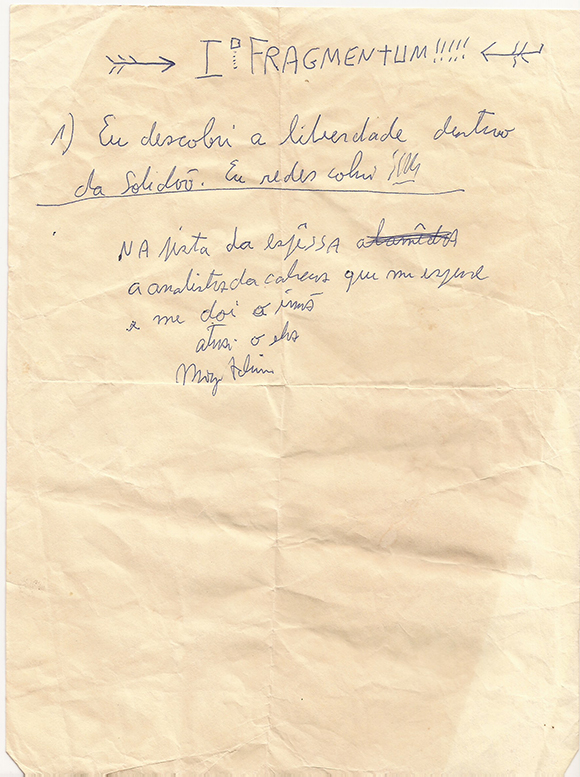 Iº FRAGMENTUM!!!!!
1) Eu descobri a liberdade dentro
da Solidão. Eu redescobri !!!!
NA pista da espêssa
a analista da cabeça que me espere
e me doi o imã
atrai o elo